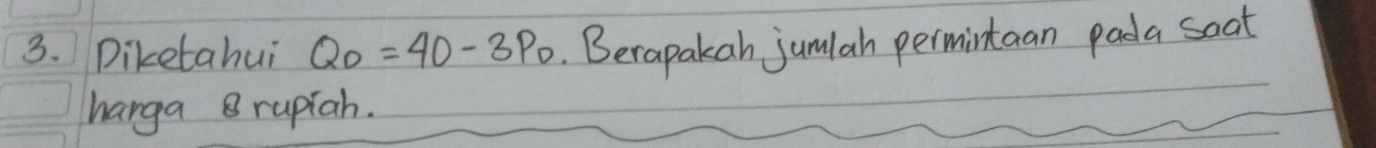 3. Diketahui QD = 40 - 3PD. Berapakah jumlah permintaan pada saat
harga 8 rupiah.